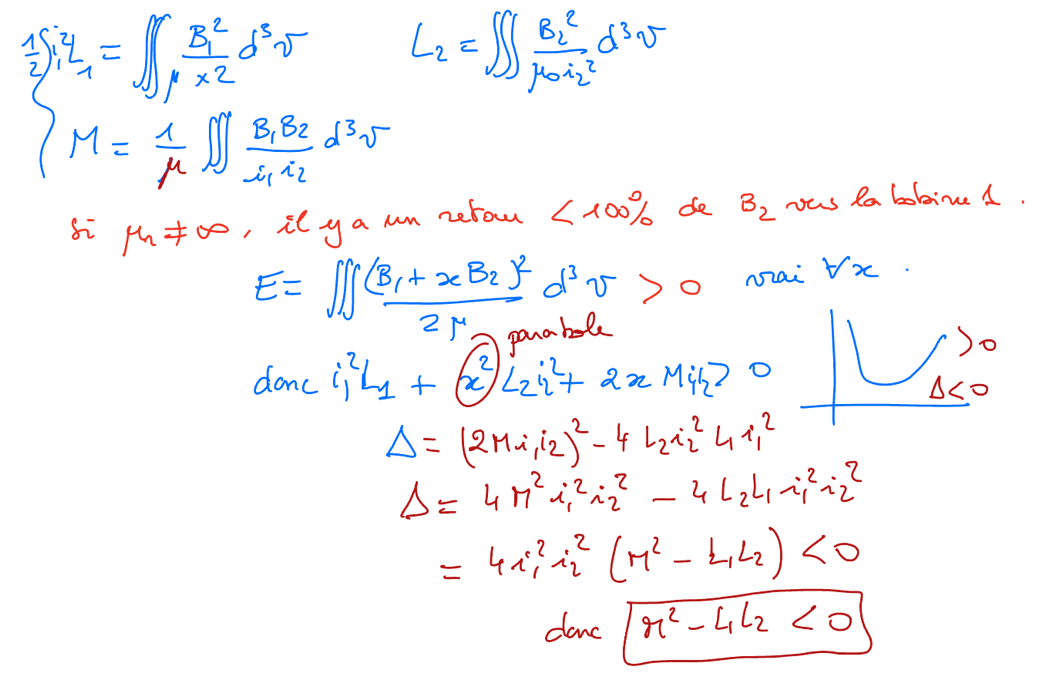 ½ i₁² L₁ = ∭ B₁² / (μ x 2) d³v    L₂ = ∭ B₂² / (μ₀ i₂²) d³v
M = 1/μ ∭ B₁B₂ / (i₁ i₂) d³v
si μr ≠ ∞, il y a un retour < 100% de B₂ vers la bobine 1.
E = ∭ (B₁ + x B₂)² / (2μ) d³v > 0 vrai ∀x.
parabole
donc i₁² L₁ + x² L₂ i₂² + 2x M i₁ i₂ > 0
> 0
Δ < 0
Δ = (2M i₁ i₂)² - 4 L₂ i₂² L₁ i₁²
Δ = 4 M² i₁² i₂² - 4 L₂ L₁ i₁² i₂²
= 4 i₁² i₂² (M² - L₁L₂) < 0
donc M² - L₁L₂ < 0